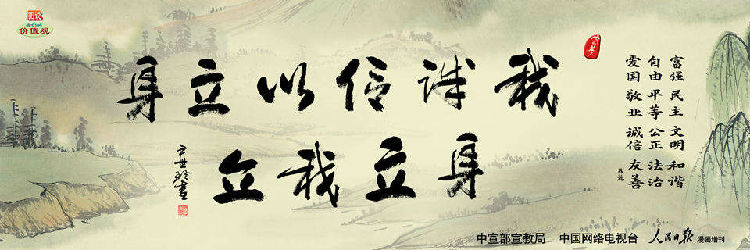 价值观
我诚信以立身
身立我立
富强 民主 文明 和谐
自由 平等 公正 法治
爱国 敬业 诚信 友善
中宣部宣教局 中国网络电视台 人民日报 漫画增刊